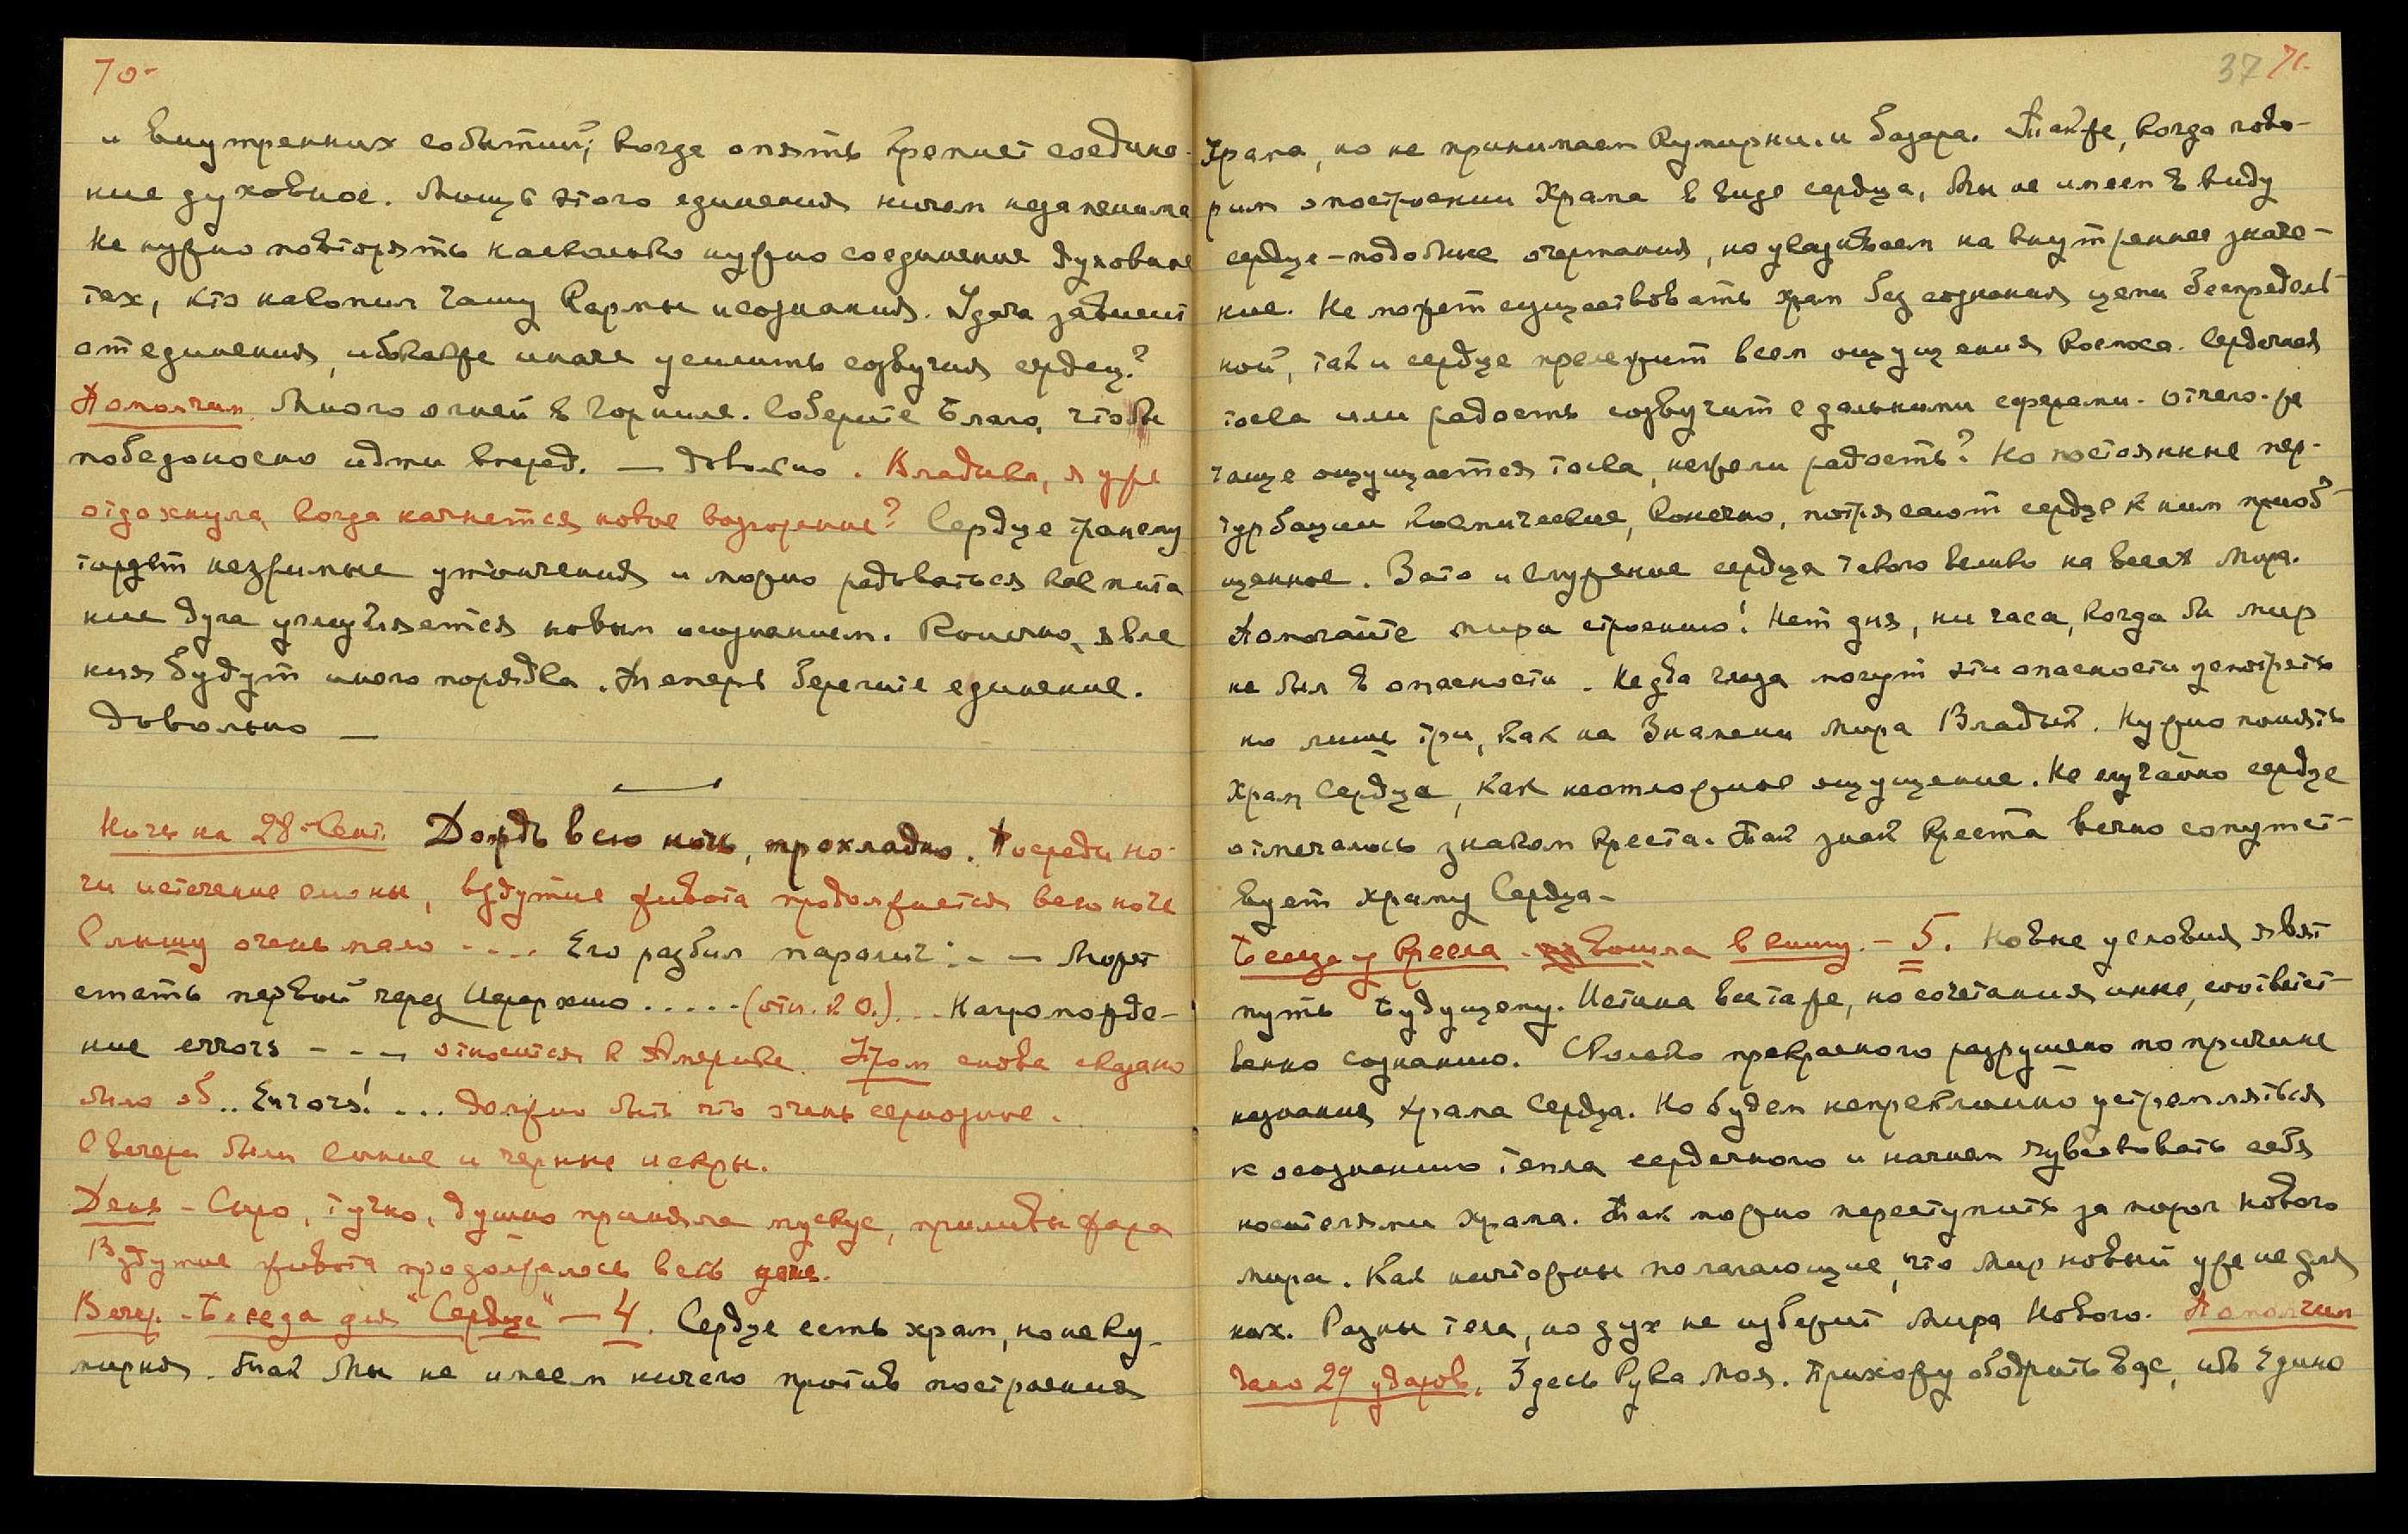 70-
и внутренних событий, когда опять крепнет соедине-
ние духовное. Мощь этого единения ничем незаменима
Не нужно повторять насколько нужно соединение духовное
тех, кто накопил чашу Кармы и сознания. Удача зависит
от единения, ибо как же иначе усилить созвучия сердец?
Помолчим. Много огней в горниле. Соберите Благо, чтобы
победоносно идти вперед. — Довольно. Владыка, я уже
отдохнула, когда начнется новое возгорение? Сердце
незримые утончения и можно радоваться как пита
ние духа улучшается новым осознанием. Конечно, явле
ния будут иного порядка. Теперь берегите единение.
Довольно —
Ночь на 28-Сент. Дождь всю ночь, прохладно. Посреди но-
чи истечение слюны, вздутие живота продолжается всю ночь
Слышу очень мало - ... Его разбил паралич: - — Может
стать первый через Иерархию ..... (отн. к О.) ... Нагроможде-
ние errors - - - относится к Америке. Утром снова сказано
было об.. Errors! ... Должно быть что очень серьезное.
С вечера были синие и черные искры.
День - Сыро, тучно, душно приняла мускус, приливы жара
Вздутие живота продолжалось весь день.
Вечер. - Беседа для "Сердце" — 4. Сердце есть храм, но не ку-
мирня. Так Мы не имеем ничего против построения
37 71.
Храма, но не принимаем Кумирни и базара. Также, когда гово-
рим о построении Храма в виде сердца, Мы не имеем в виду
сердце-подобные очертания, но указываем на внутреннее значе-
ние. Не может существовать храм без сознания цепи беспредель-
ной, так и сердце прележит всем ощущениям Космоса. Сердечная
тоска или радость созвучит с дальними сферами. Отчего-же
чаще ощущается тоска, нежели радость? Но постоянные пер-
турбации космические, конечно, потрясают сердце к ним приоб-
щенное. Зато и служение сердца такого велико на весах Мира.
Помогайте мира строению! Нет дня, ни часа, когда бы мир
не был в опасности. Не два глаза могут эти опасности усмотреть
но лишь три, как на Знамени Мира Владык. Нужно понять
Храм Сердца, как неотложное ощущение. Не случайно сердце
отмечалось знаком Креста. Так знак Креста вечно сопутст-
вует Храму Сердца-
Беседа у кресла. - вошла в книгу. - 5. Новые условия явят
путь Будущему. Истина все та же, но сочетания иные, соответст-
венно сознанию. Сколько прекрасного разрушено по причине
незнания Храма Сердца. Но будем непреклонно устремляться
к осознанию тепла сердечного и начнем чувствовать себя
носителями Храма. Так можно переступить за порог Нового
мира. Как ничтожны полагающие, что Мир новый уже не для
них. Разны тела, но дух не избежит Мира Нового. Помолчим
29 ударов. Здесь Рука Моя. Прихожу ободрить Вас, ибо Едино